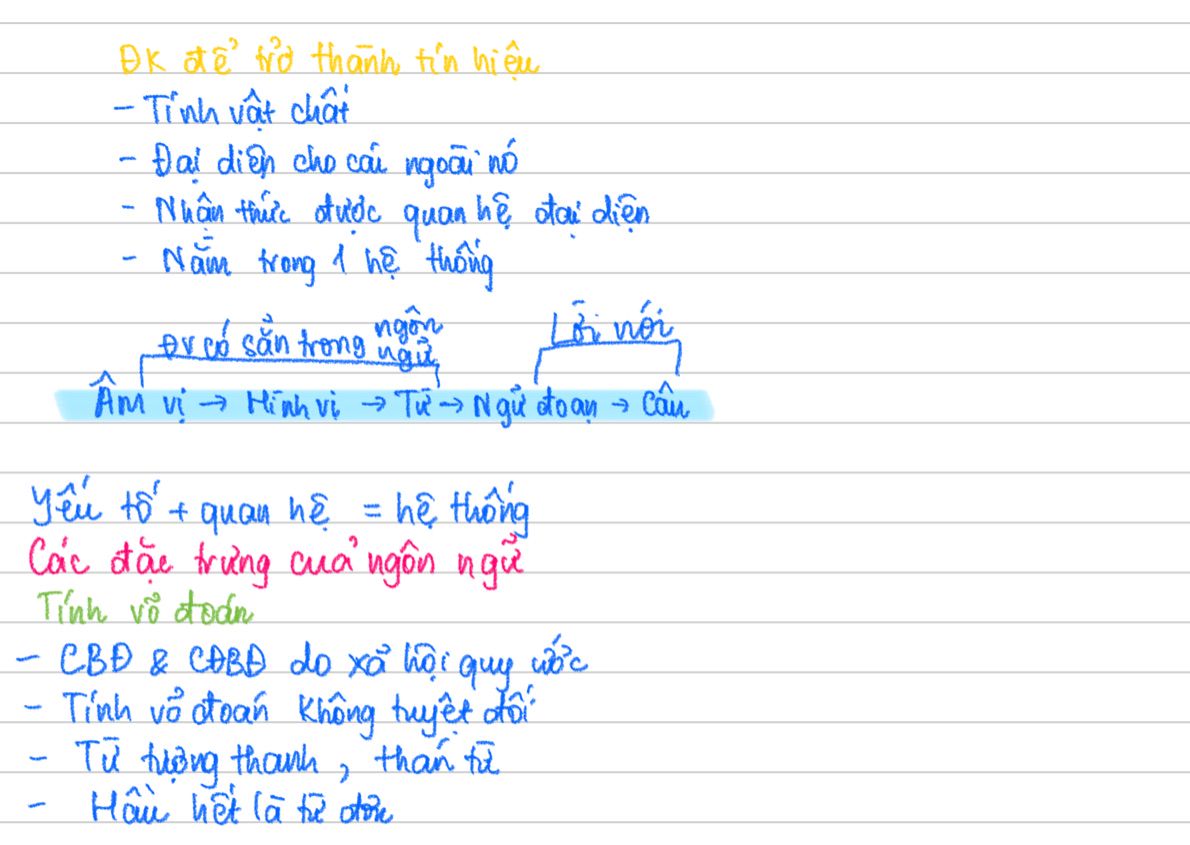 ĐK để trở thành tín hiệu
- Tính vật chất
- Đại diện cho cái ngoài nó
- Nhận thức được quan hệ đại diện
- Nằm trong 1 hệ thống
ĐV có sẵn trong ngôn ngữ
Lời nói
Âm vị → Hình vị → Từ → Ngữ đoạn → Câu
Yếu tố + quan hệ = hệ thống
Các đặc trưng của ngôn ngữ
Tính võ đoán
- CBĐ & CĐBĐ do xã hội quy ước
- Tính võ đoán không tuyệt đối
- Từ tượng thanh, thán từ
- Hầu hết là từ đơn